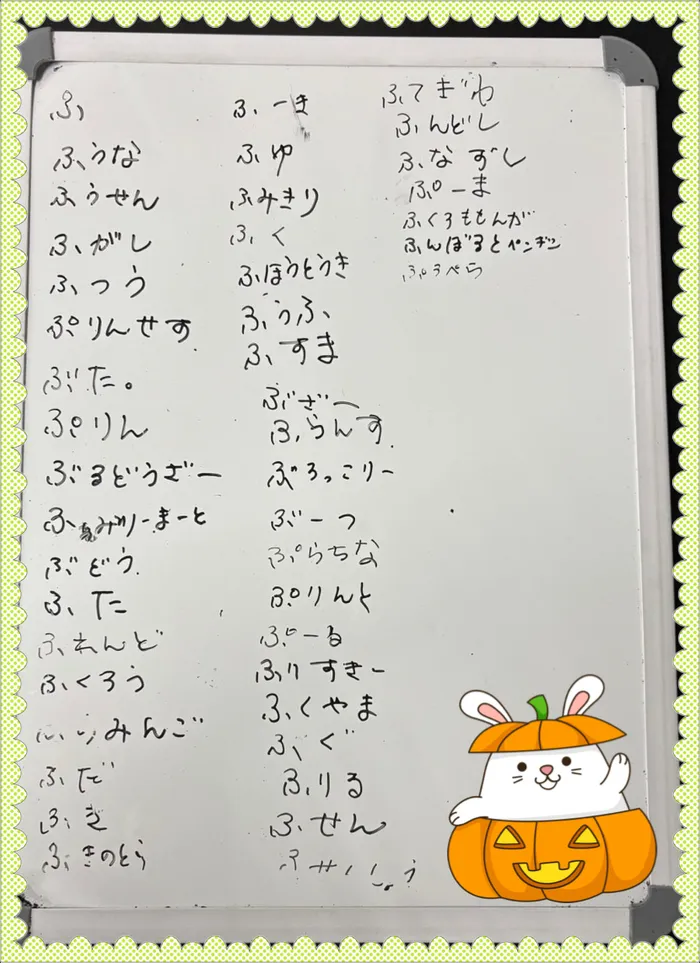 ふ
ふうな
ふうせん
ふがし
ふつう
ぷりんせす
ぶた。
ぷりん
ぶるどうざー
ふぁみりーまーと
ぶどう
ふた
ふれんど
ふくろう
ふらみんご
ふだ
ふき
ふきのとう
ふーき
ふゆ
ふみきり
ふく
ふほうとうき
ふうふ
ふすま
ぶざー
ふらんす
ぶろっこりー
ぶーつ
ぷらちな
ぷりんと
ぷーる
ふりすきー
ふくやま
ふぐ
ふりる
ふせん
ふてぎわ
ふんどし
ふなずし
ぷーま
ふくろももんが
ふんぼるとペンギン
ぷろぺら